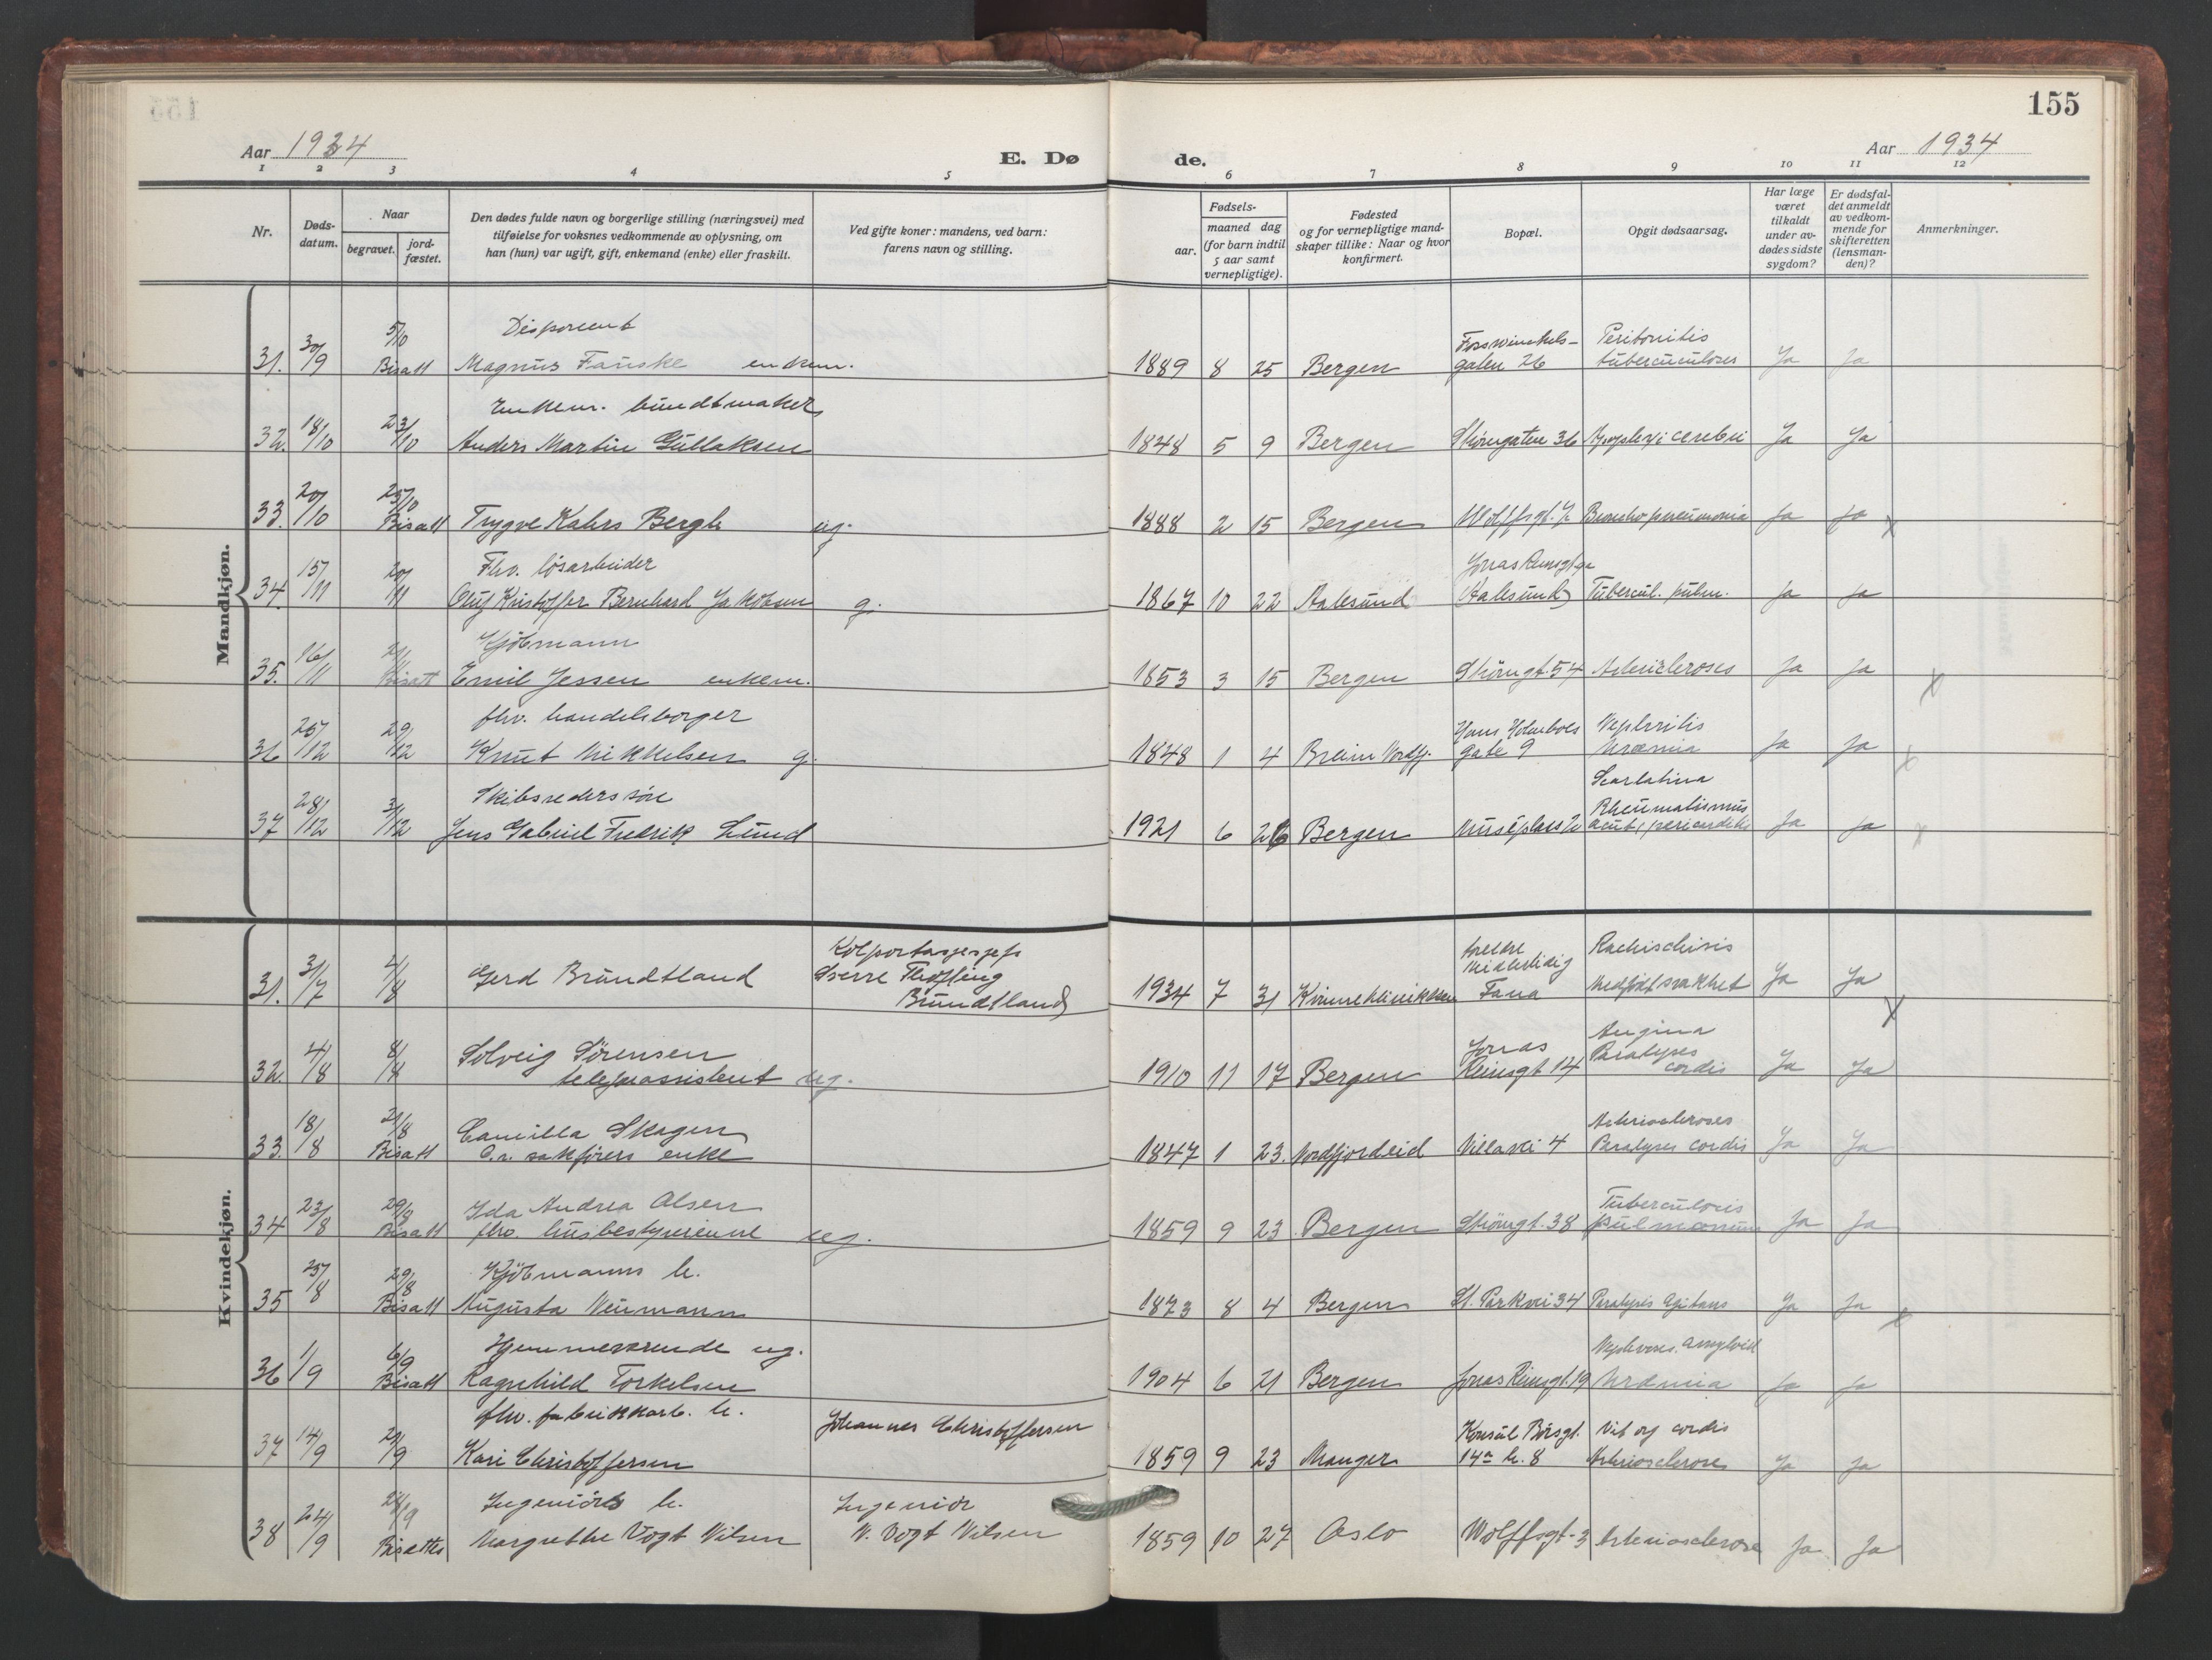 155
Aar 1934
E. Dø
de.
Aar 1934
1 2 3 4 5 6 7 8 9 10 11 12
Nr.
Døds-
datum.
Naar
begravet.
jord-
fæstet.
Den dødes fulde navn og borgerlige stilling (næringsvei) med
tilføielse for voksnes vedkommende av oplysning, om
han (hun) var ugift, gift, enkemand (enke) eller fraskilt.
Ved gifte koner: mandens, ved barn:
farens navn og stilling.
Fødsels-
aar.
maaned dag
(for barn indtil
5 aar samt
vernepligtige).
Fødested
og for vernepligtige mand-
skaper tillike: Naar og hvor
konfirmert.
Bopæl.
Opgit dødsaarsag.
Har læge
været
tilkaldt
under av-
dødes sidste
sygdom?
Er dødsfal-
det anmeldt
av vedkom-
mende for
skifteretten
(lensman-
den)?
Anmerkninger.
Mandkjøn.
5/10 Disponent Fosswinckels- Peritonitis
31. 30/9 Bisatt Magnus Fauske enkem. 1889 8 25 Bergen gaten 26 tuberculoses Ja Ja
Enkem. bundtmaker
32. 18/10 23/10 Anders Martin Gullaksen 1848 5 9 Bergen Strømgaten 36 Apoplexi cerebri Ja Ja
33. 20/10 25/10 Bisatt Trygve Kahrs Bergh ug. 1888 2 15 Bergen Wolffsgt. Bronchopneumonia Ja Ja x
Fhv. løsarbeider Jonas Reinsgt
34. 15/11 20/11 Oluf Kristoffer Bernhard Jakobsen g. 1867 10 22 Aalesund (Aalesund) Tubercul. pulm. Ja Ja
Kjøbmann
35. 16/11 21/11 Bisatt Emil Jessen enkem. 1853 3 15 Bergen Strømgt. 54 Arterioscleroses Ja Ja x
fhv. handelsborger Hans Holmboes Nephritis
36 25/12 29/12 Knut Mikkelsen g. 1848 1 4 Breim Nordfj. gate 9 Uræmia Ja Ja x
Skibsreders søn Scarlatina
Rheumatismus
37 28/12 31/12 Jens Gabriel Fredrik Lund 1921 6 26 Bergen Muséplass 2 acut, pericarditis Ja Ja x
Kvindekjøn.
Kolportasjesjef Rachischisis
31. 31/7 4/8 Gerd Brundtland Sverre Brundtland 1934 7 31 Kvinneklinikken Fana Medfødt svakhet Ja Ja x
Angina
Solveig Sørensen Jonas Paralyses
32. 4/8 8/8 teleassistent ug. 1910 11 17 Bergen Reinsgt 14 cordis Ja Ja
Camilla Skagen Arterioscleroses
33. 18/8 21/8 Bisatt O.r. sakførers enke 1847 1 23. Nordfjordeid Villavei 4 Paralyses cordis Ja Ja
Ida Andrea Olsen Tuberculosis
34 23/8 29/8 Bisatt fhv. husbestyrerinne ug. 1859 9 23 Bergen Strømgt. 38 pulmonum Ja Ja
Kjøbmanns h.
35 25/8 29/8 Bisatt Augusta Neumann 1873 8 4 Bergen St. Parkvei 34 Paralysis agitans Ja Ja x
Hjemmeværende ug. Nephroses. amyloid
36 1/9 6/9 Bisatt Ragnhild Torkelsen 1904 6 21 Bergen Jonas Reinsgt. 19 Uræmia Ja Ja
fhv. fabrikkarb. h. Johannes Christoffersen Konsul Børsgt. Vit org cordis
37 14/9 Kari Christoffersen 1859 9 23 Manger 14a h. 8 Arteriosclerose Ja Ja
Ingeniørs h. Ingeniør
38 24/9 28/9 Bisattes Margrethe Vogt Nilsen N. Vogt Nilsen 1859 10 27 Oslo Wolffsgt. 3 Arteriosclerose Ja Ja